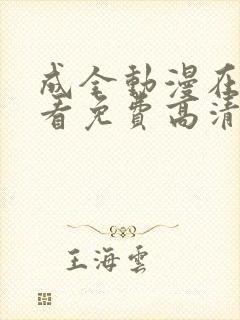 成全動漫在
看免費高清
王海雲